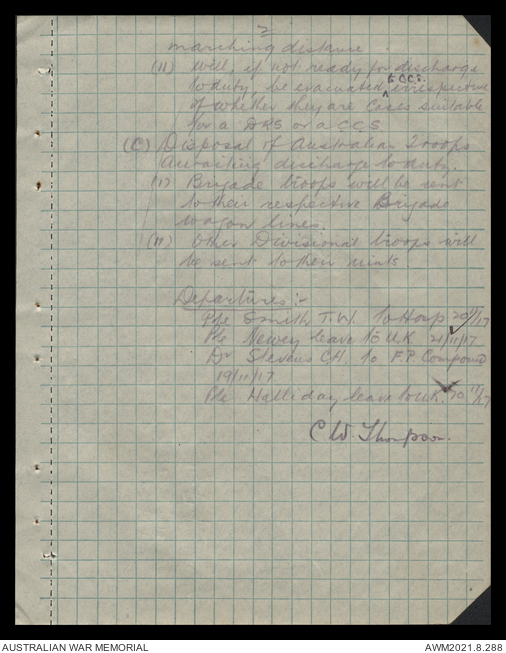 2
marching distance
(II) Well, if not ready for discharge
to duty, be evacuated to CCS. irrespective
of whether they are cases suitable
for a DRS or a CCS
(C) Disposal of Australian Troops
awaiting discharge to duty.
(I) Brigade troops will be sent
to their respective Brigade
wagon lines.
(II) Other Divisional troops will
be sent to their units.
Departures:-
Pte Smith T.W. to Hosp 20/11/17
Pte Newey leave to U.K. 21/11/17
Dr Stevens C.H. to F.P. Compound
19/11/17
Pte Halliday leave to U.K. 20/11/17
C W. Thompson.
AUSTRALIAN WAR MEMORIAL
AWM2021.8.288